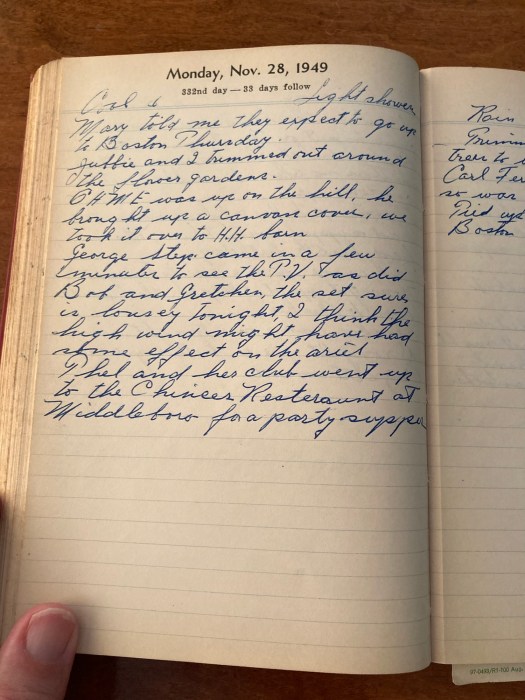 Monday, Nov. 28, 1949
332nd day — 33 days follow
Light shower
Mary told me they expect to go up
to Boston Thursday.
Jubbie and I trimmed out around
the flower gardens.
was up on the hill, he
brought up a canvas cover, we
took it over to H.H. barn
George Step. came in a few
minutes to see the T.V. as did
Bob and Gretchen, the set sure
is, lousey tonight, I think the
high wind might have had
some effect on the ariel
Thel and her club went up
to the Chineer Resteraunt at
Middleboro for a party supper
Rain
Trimm
trees to
Carl Fer
so was
Tied up
Boston